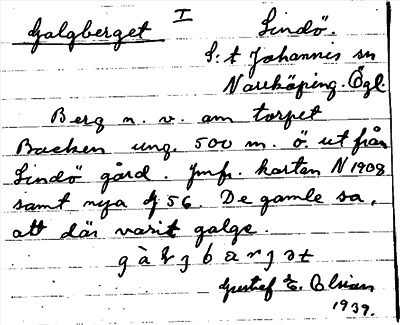 Galgberget I Lindö.
S:t Johannis sn
Norrköping. Ögl.
Berg n. v. om torpet
Backen ung. 500 m. ö. ut från
Lindö gård. Jmfr. kartan N 1908
samt nya J 56. De gamle sa,
att där varit galge.
Gustaf E. Olsian
1939.